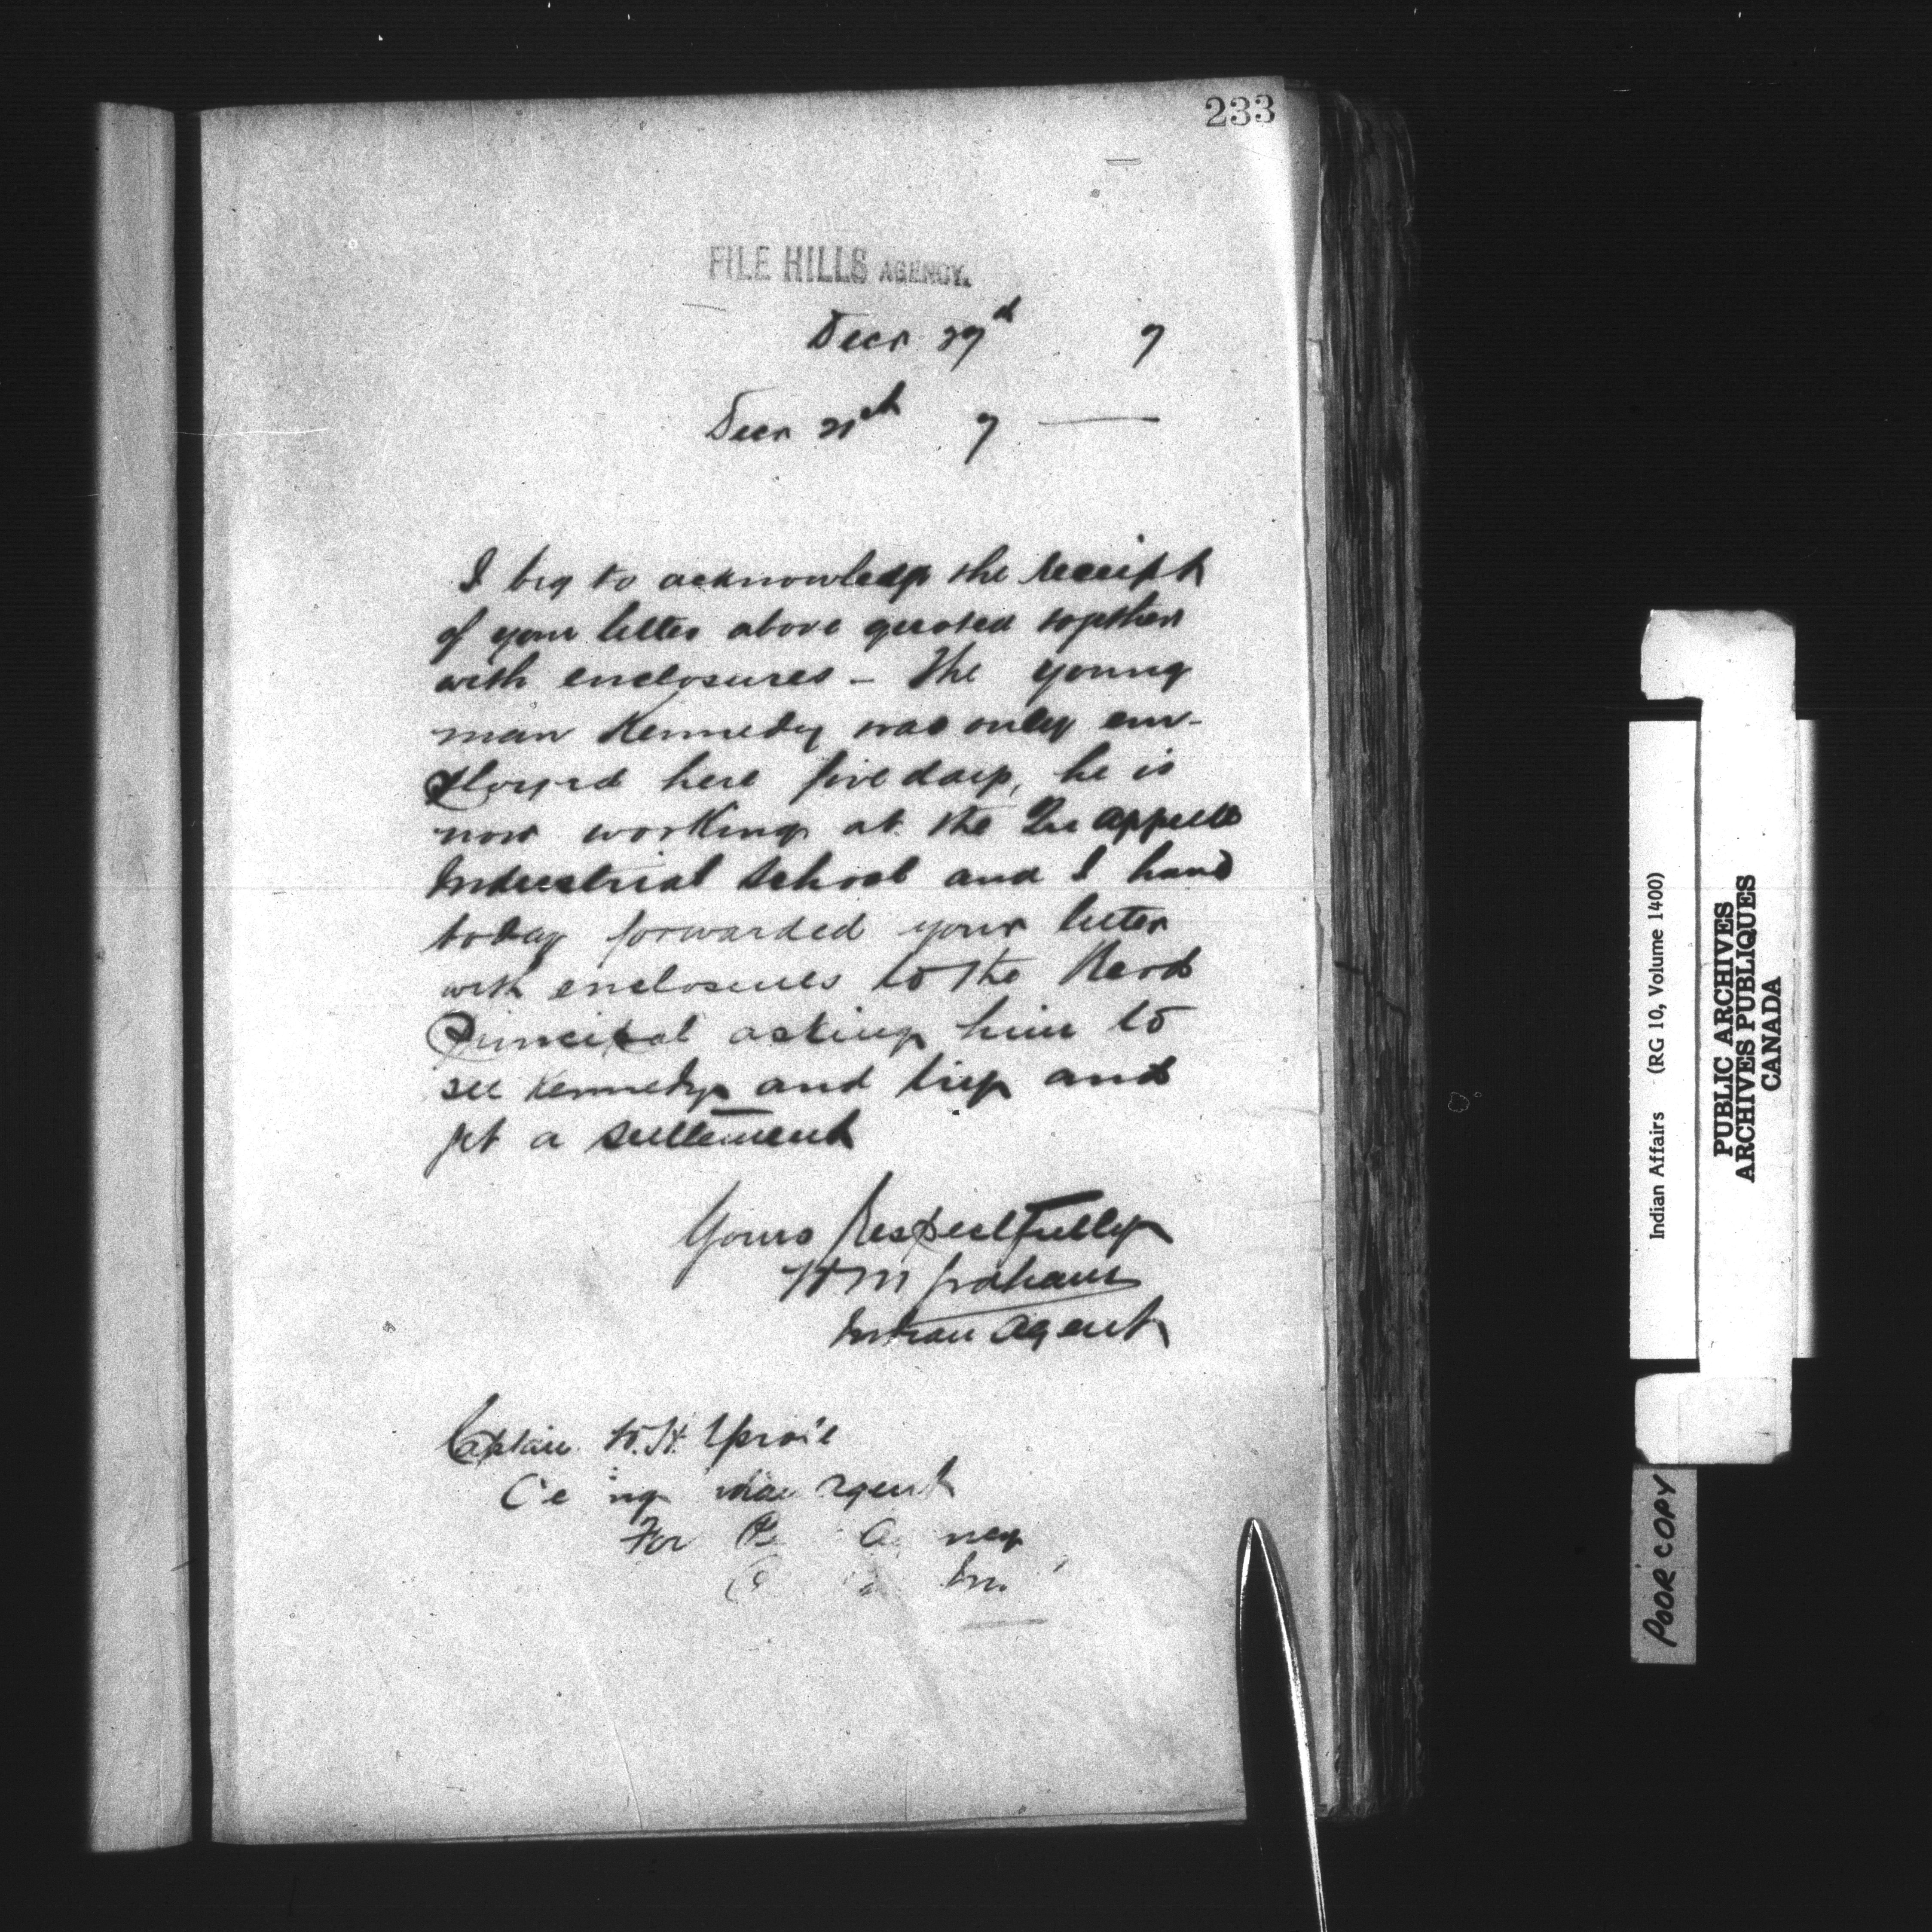 233
FILE HILLS AGENCY.
Decr 29th 7
Decr 21st 7
I beg to acknowledge the receipt
of your letter above quoted together
with enclosures – The young
man Kennedy was only em-
ployed here five days, he is
now working at the Qu'appelle
Industrial School and I have
today forwarded your letter
with enclosures to the Revd
Principal asking him to
see Kennedy and try and
get a settlement
Yours Respectfully
W M Graham
Indian Agent
Captain
Agent
For
Indian Affairs (RG 10, Volume 1400)
PUBLIC ARCHIVES
ARCHIVES PUBLIQUES
CANADA
POOR COPY